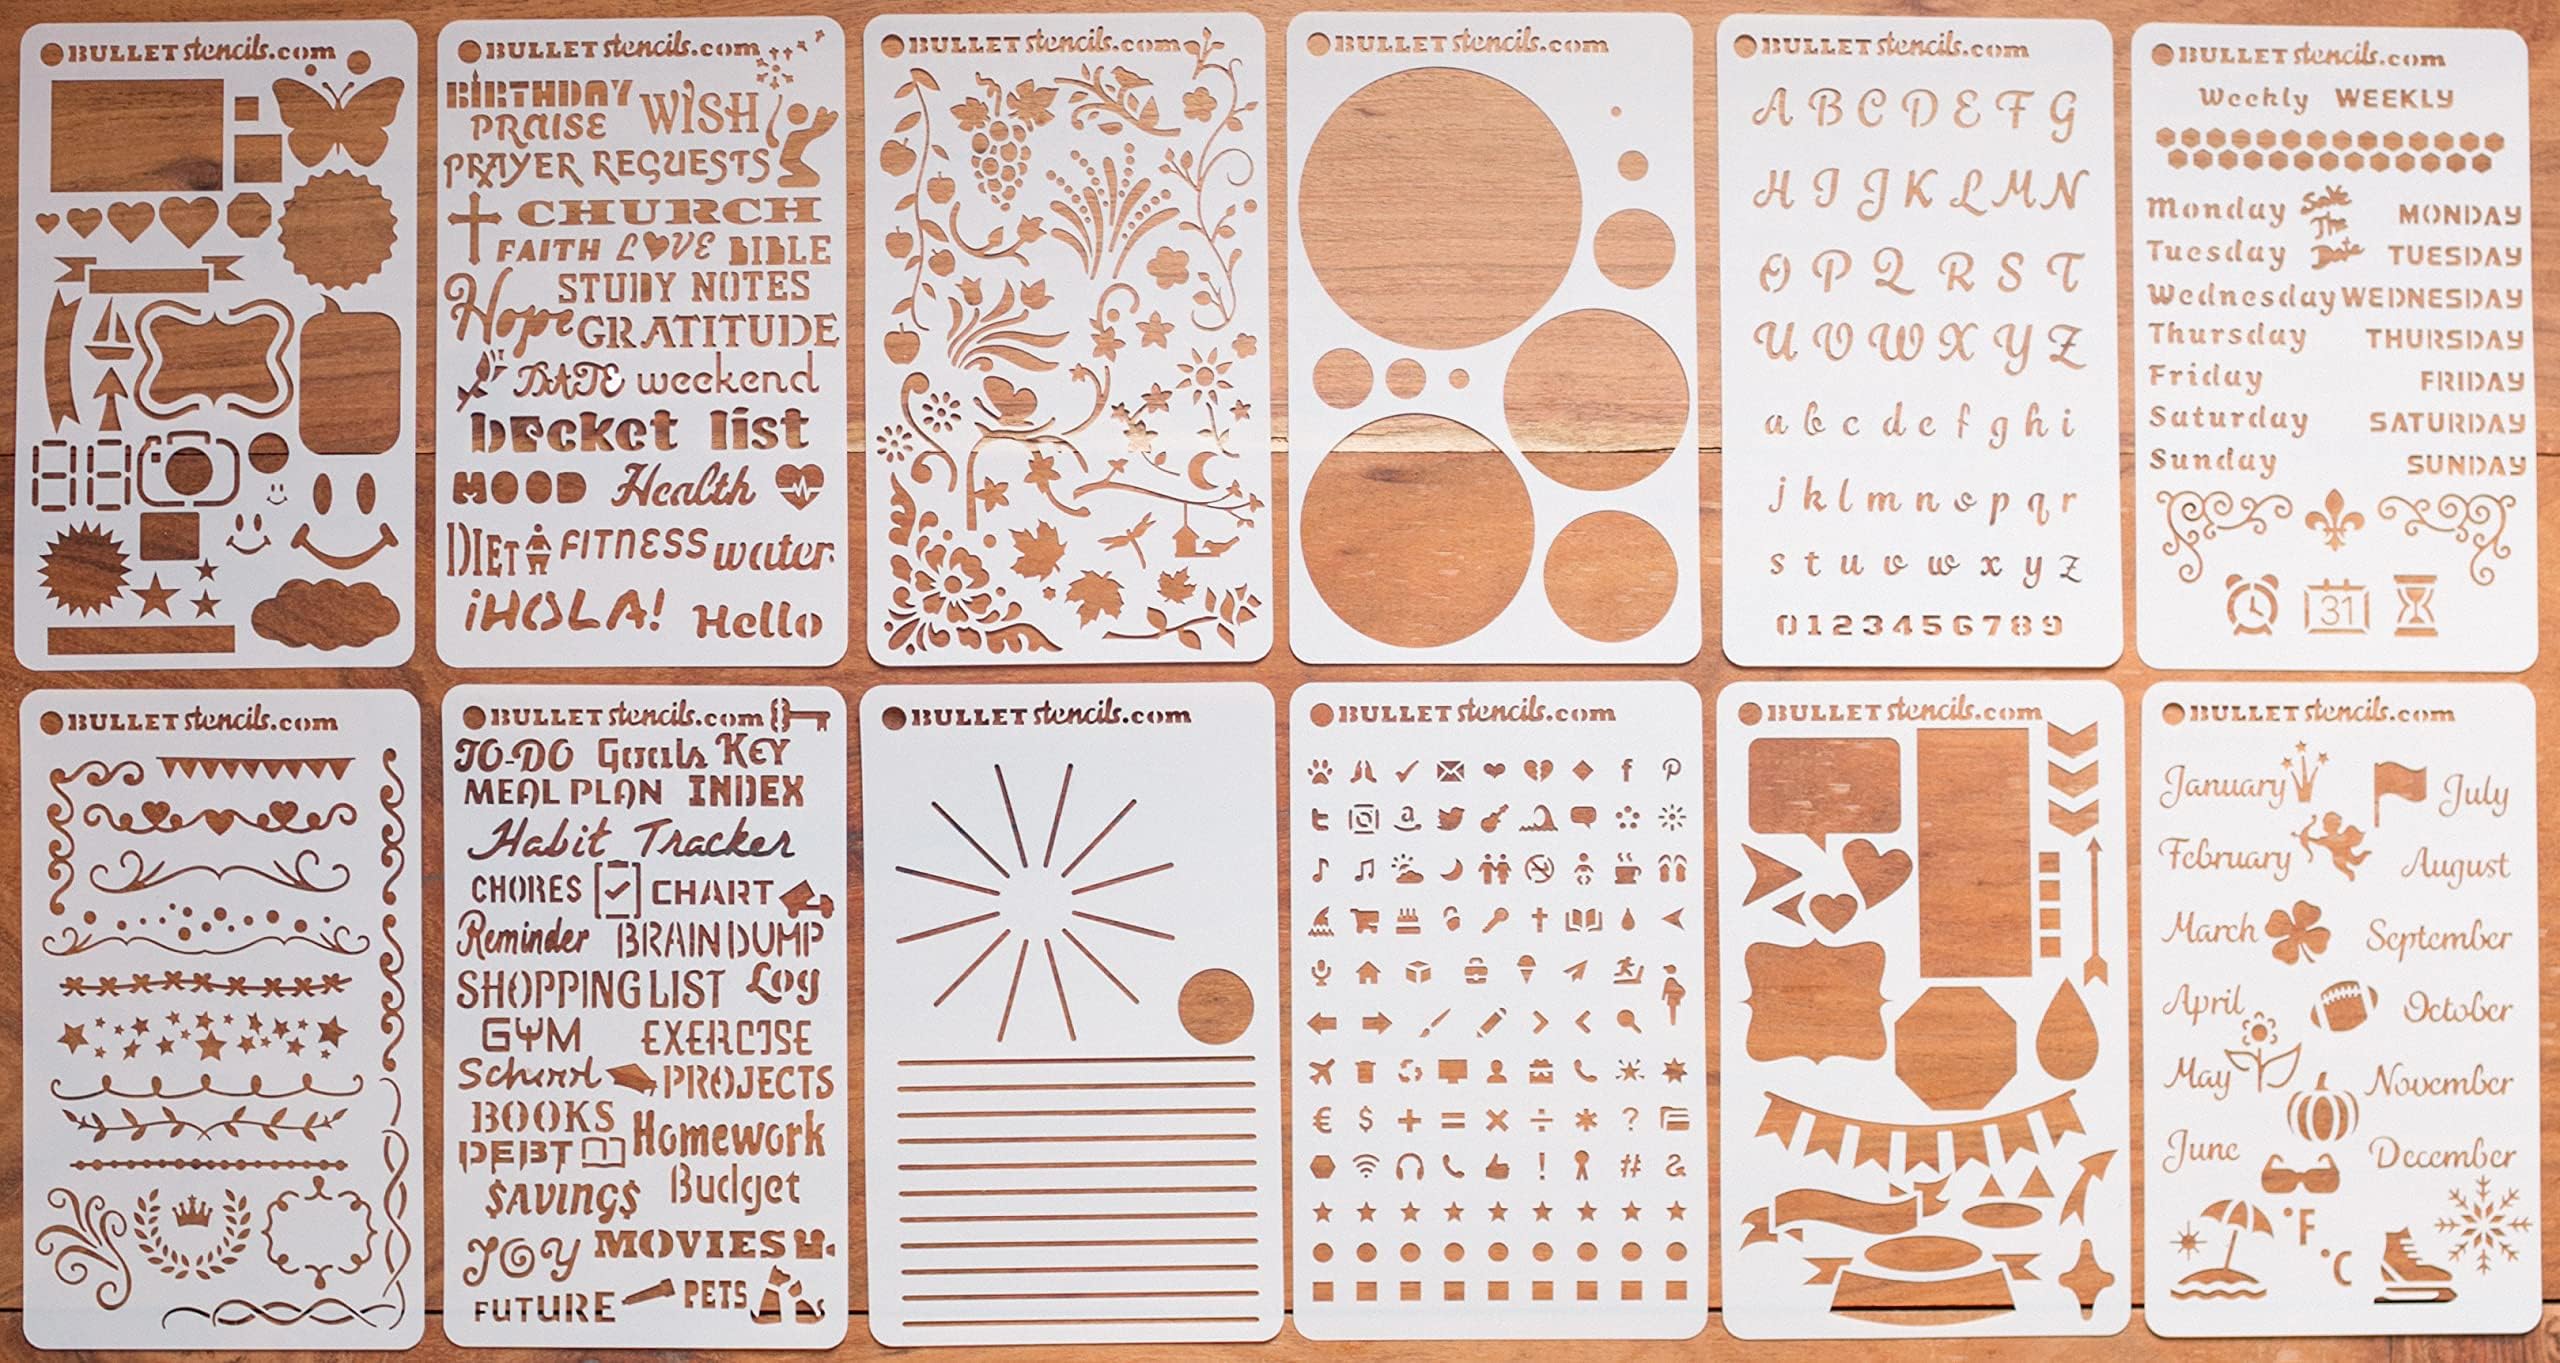 BULLET stencils.com
88
BULLET stencils.com
BIRTHDAY WISH
PRAISE
PRAYER REQUESTS
CHURCH
FAITH LOVE BIBLE
Hope STUDY NOTES
GRATITUDE
DATE weekend
bucket list
MOOD Health
DIET FITNESS water
¡HOLA! Hello
BULLET stencils.com
BULLET stencils.com
BULLET stencils.com
A B C D E F G
H I J K L M N
O P Q R S T
U V W X Y Z
a b c d e f g h i
j k l m n o p q r
s t u v w x y z
0 1 2 3 4 5 6 7 8 9
BULLET stencils.com
Weekly WEEKLY
Monday Save The Date MONDAY
Tuesday TUESDAY
Wednesday WEDNESDAY
Thursday THURSDAY
Friday FRIDAY
Saturday SATURDAY
Sunday SUNDAY
31
BULLET stencils.com
BULLET stencils.com
TO-DO Goals KEY
MEAL PLAN INDEX
Habit Tracker
CHORES CHART
Reminder BRAIN DUMP
SHOPPING LIST Log
GYM EXERCISE
School PROJECTS
BOOKS
DEBT Homework
$AVING$ Budget
JOY MOVIES
FUTURE PETS
BULLET stencils.com
BULLET stencils.com
f
t a
€ $ + = × ÷ * ?
! # &
BULLET stencils.com
BULLET stencils.com
January July
February August
March September
April October
May November
June December
°F
°C